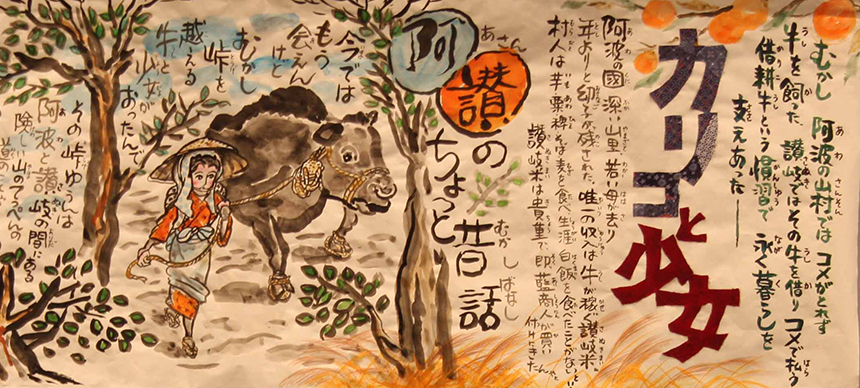 むかし 阿波の山村では コメがとれず
牛を飼った 讃岐ではその牛を借り コメで払う
借耕牛という慣習で 永く暮らしを
支えあった―
カリコと少女
阿波の國 深山里 若い母が去り
年よりと幼子が残された 唯一の収入は牛が稼ぐ讃岐米。
村人は芋粟稗そば麦を食べ生涯白飯を食べたことがないと
讃岐米は貴重で即藍商人が買い
付けにきた
阿讃のちょっと昔話
今では
もう
会えん
けど
むかし
峠を
越える
牛と
少女が
おったんで
その峠ゆうんは
阿波と讃岐の間にある
険しい山のてっぺんの